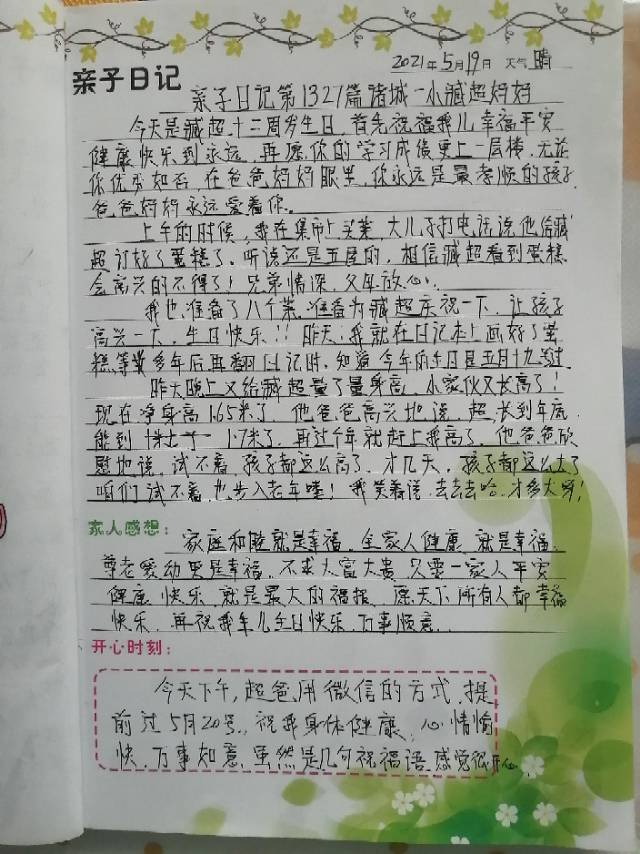 2021年5月19日 天气 晴
亲子日记
亲子日记第1327篇诸城一小臧超妈妈
今天是臧超十三周岁生日,首先祝福我儿幸福平安
健康快乐到永远,再愿你的学习成绩更上一层楼,无论
你优秀如否,在爸爸妈妈眼里,你永远是最孝顺的孩子
爸爸妈妈永远爱着你。
上午的时候,我在集市上买菜,大儿子打电话说他给臧
超订好了蛋糕了,听说还是五层的,相信臧超看到蛋糕
会高兴的不得了!兄弟情深,父母放心。
我也准备了八个菜,准备为臧超庆祝一下,让孩子
高兴一下,生日快乐!!昨天,我就在日记本上画好了蛋
糕,等若多年后再翻日记时,知道今年的生日是五月十九
昨天晚上又给臧超量了量身高,小家伙又长高了!
现在净身高165米了,他爸爸高兴地说,超,长到年底
能到 1.7米了,再过个年就赶上我高了,他爸爸欣
慰地说,试不着,孩子都这么高了,才几天,孩子都这么大了
咱们试不着,也步入老年哇!我笑着说,去去去哈,才多大呀!
家人感想:
家庭和睦就是幸福,全家人健康,就是幸福,
尊老爱幼更是幸福,不求大富大贵,只要一家人平安
健康,快乐,就是最大的福报,愿天下所有人都幸福
快乐,再祝我车儿生日快乐,万事顺意
开心时刻:
今天下午,超爸用微信的方式,提
前过5月20号,祝我身体健康,心情愉
快,万事如意,虽然是几句祝福语,感觉很开心